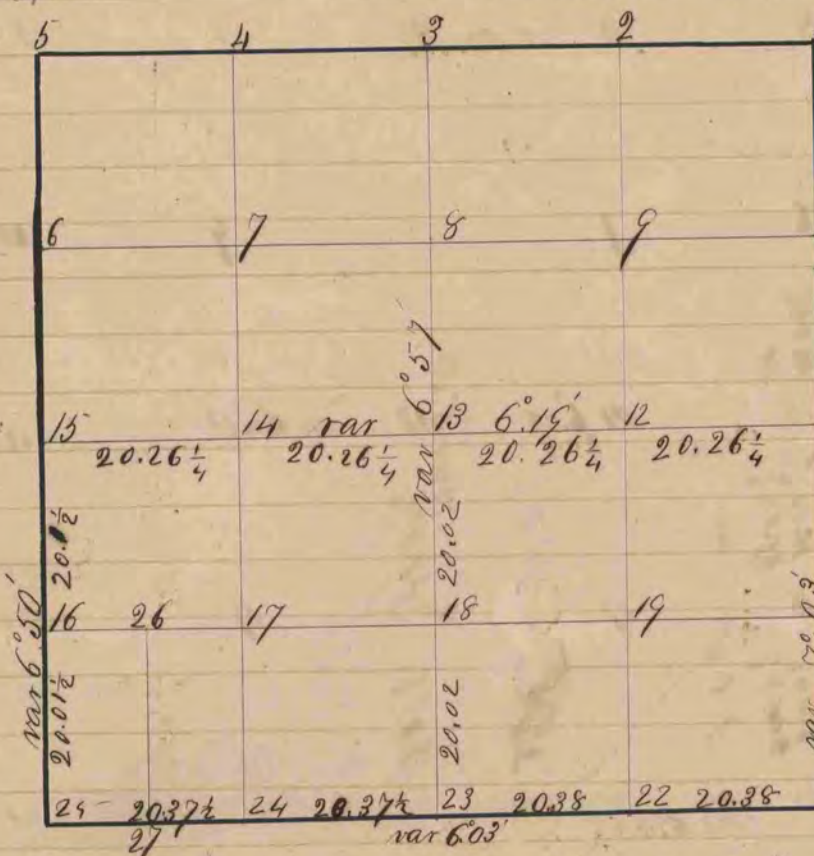 5 4 3 2
6 7 8 9
var 6° 57
15 14 var 13 6°.19' 12
20.26 1/4 20.26 1/4 20.26 1/4 20.26 1/4
20.02
16 26 17 18 19
var 6° 50'
20.01 1/2
20.02
25 20.37 1/2 24 20.37 1/2 23 20.38 22 20.38
27 var 6°.03'